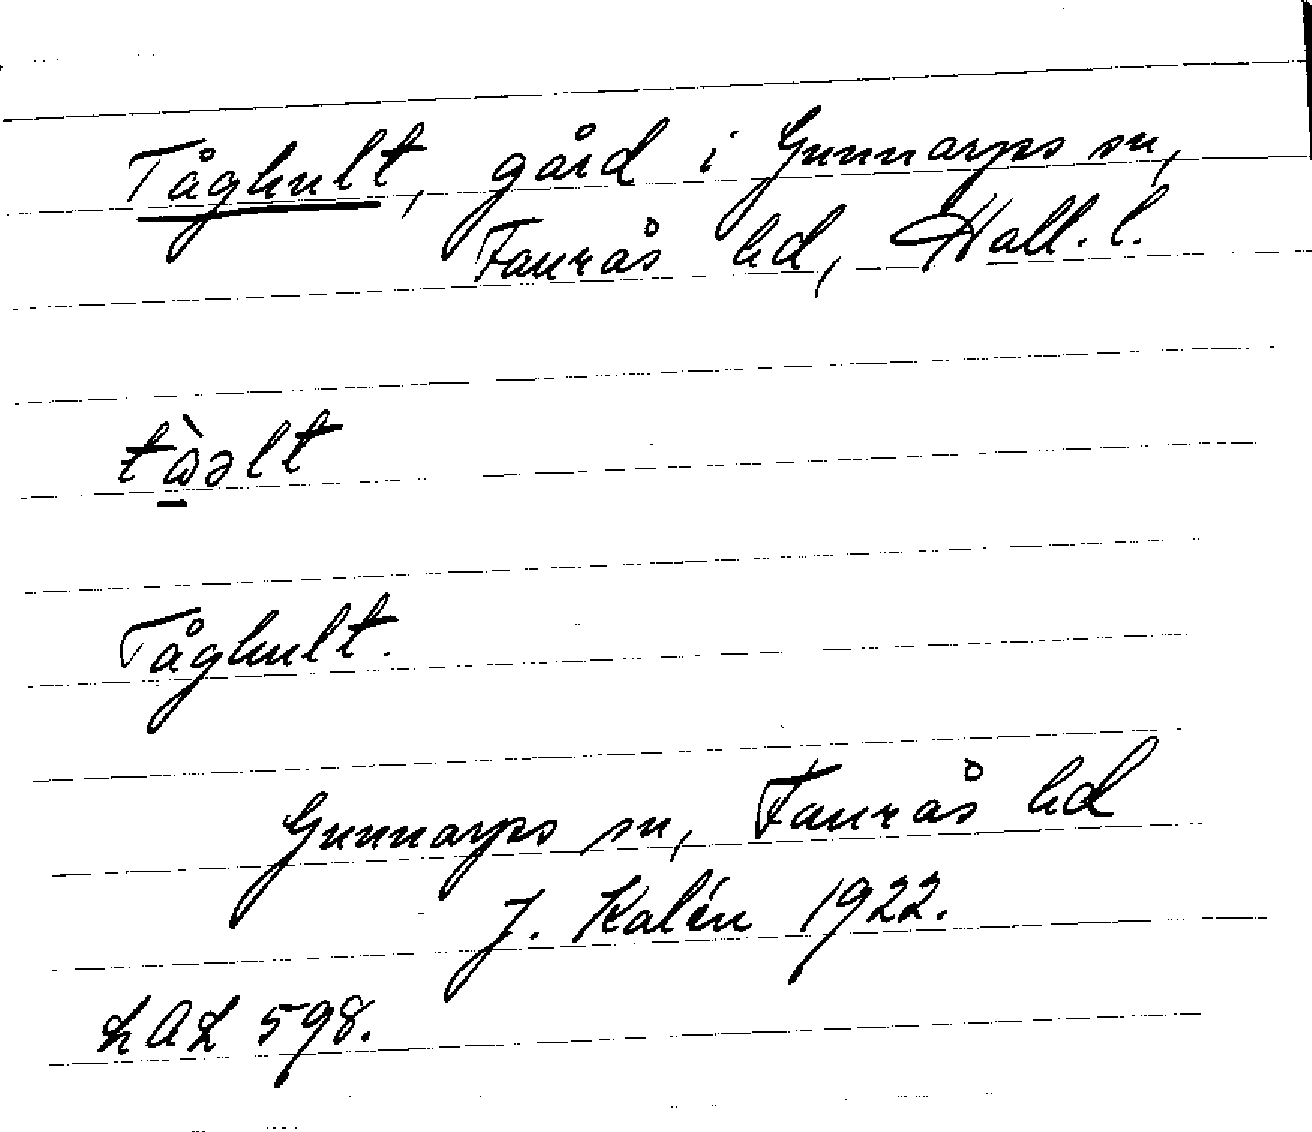 Tåghult, gård i Gunnarps sn,
Faurås hd, Hall. l.
tὼ̱əlt
Tåghult.
Gunnarps sn, Faurås hd
J. Kalén 1922.
LAL 598.